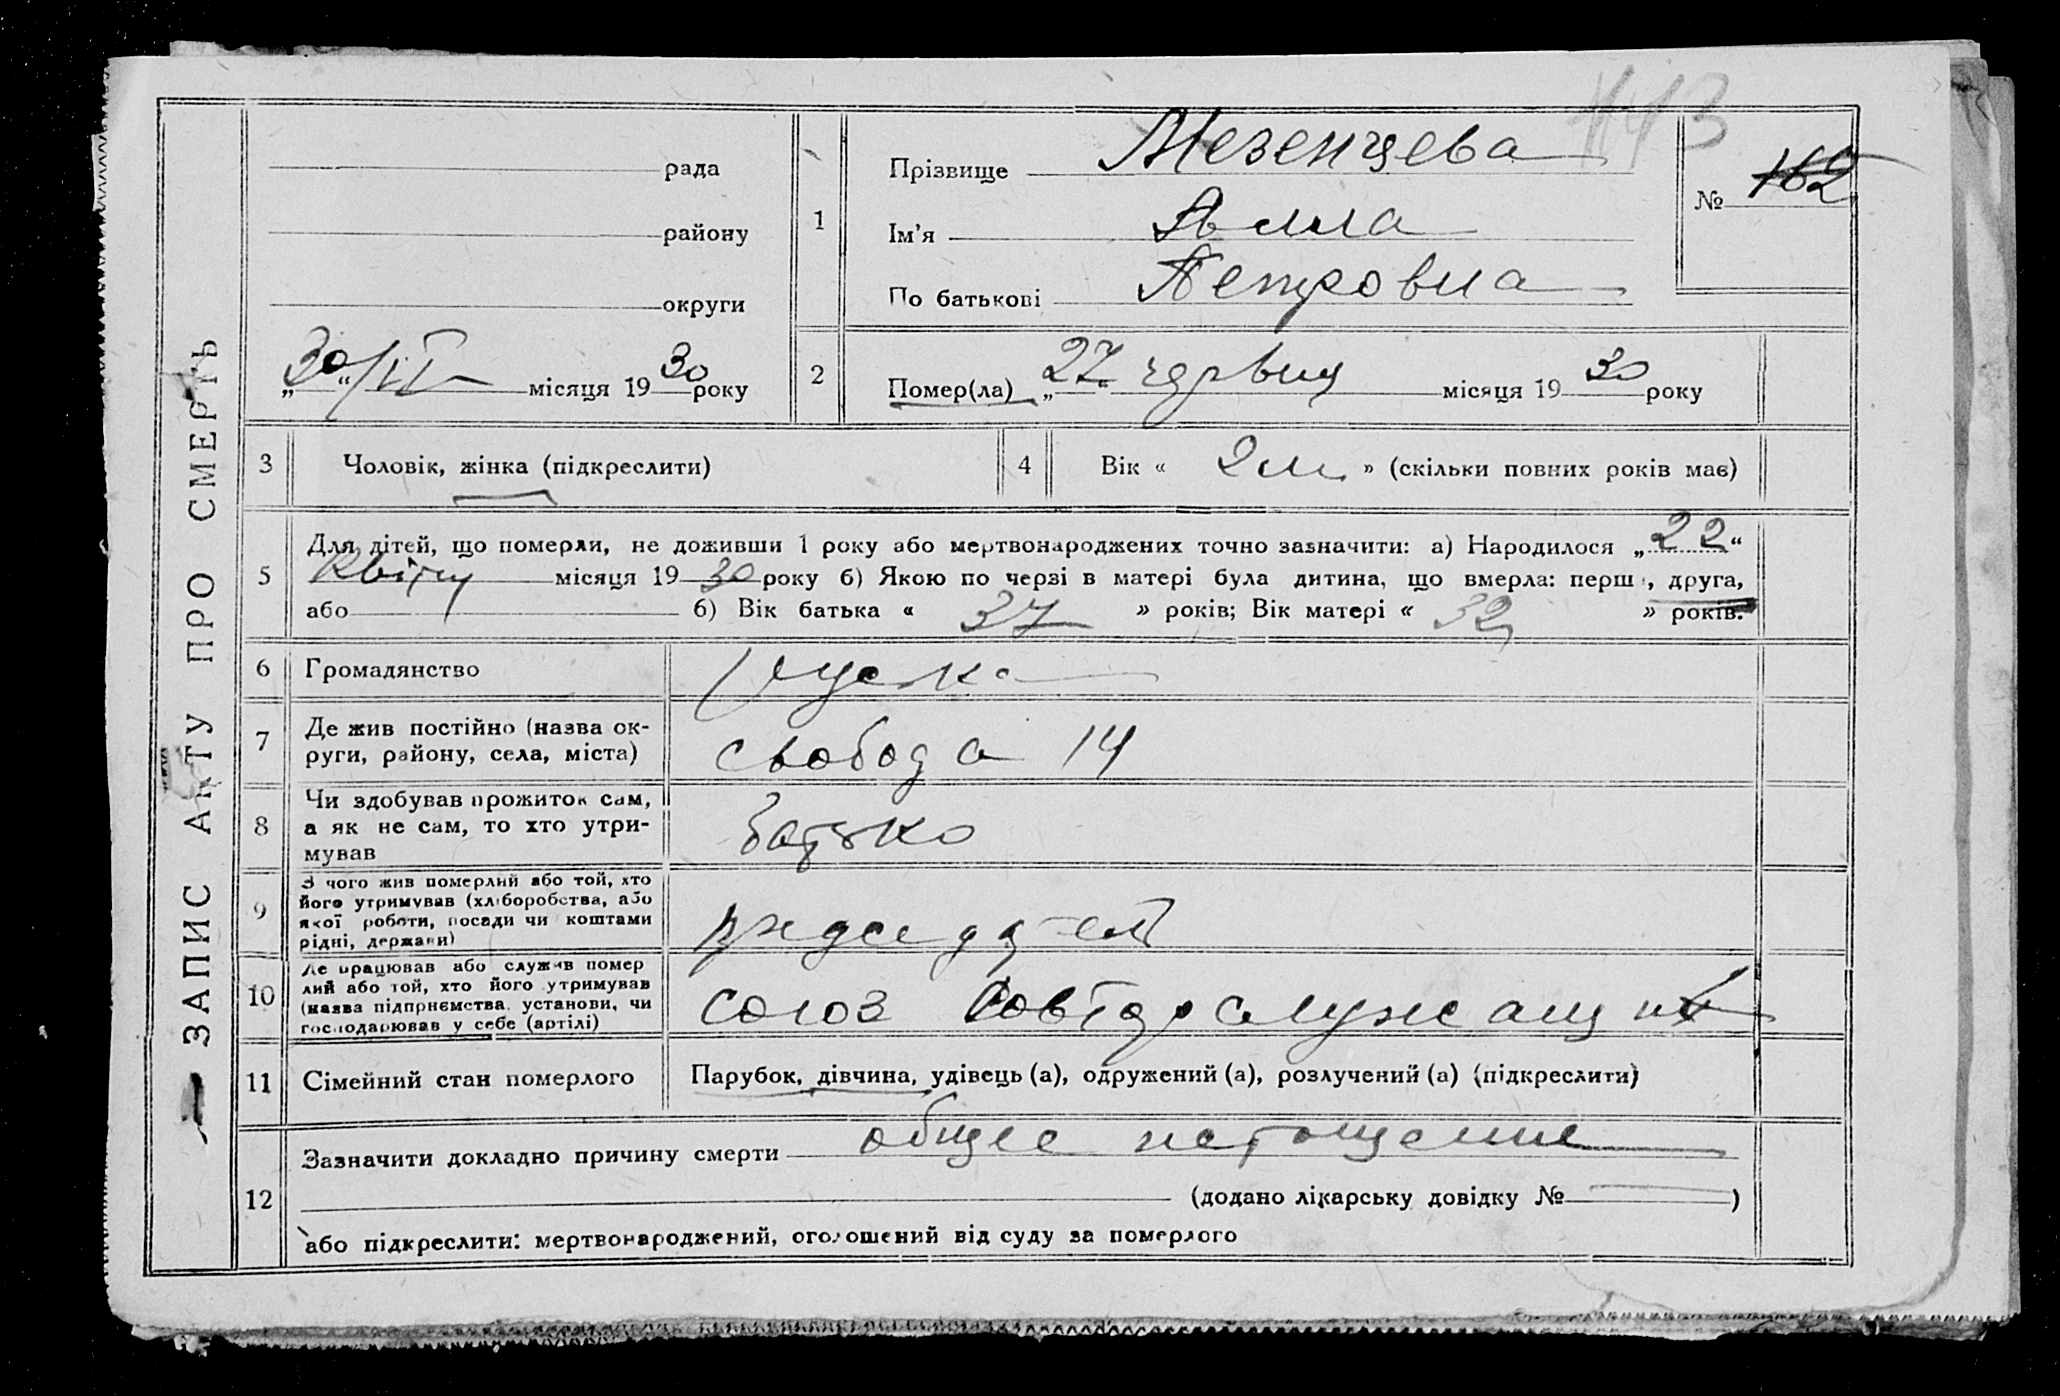 ЗАПИС АКТУ ПРО СМЕРТЬ
рада
району
округи
„30“/VI місяця 1930 року
1
Прізвище Мезенцева
Ім'я Алла
По батькові Петровна
№ 162
2
Помер(ла) „27“ червня місяця 1930 року
3 Чоловік, жінка (підкреслити)
4 Вік « 2 м » (скільки повних років має)
5 Для дітей, що померли, не доживши 1 року або мертвонароджених точно зазначити: а) Народилося „22“
Квітня місяця 1930 року б) Якою по черзі в матері була дитина, що вмерла: перш, друга,
або б) Вік батька « 37 » років; Вік матері « 32 » років.
6 Громадянство руська
7 Де жив постійно (назва ок-
руги, району, села, міста) свобода 14
8 Чи здобував прожиток сам,
а як не сам, то хто утри-
мував батько
9 З чого жив померлий або той, хто
його утримував (хліборобства, або
якої роботи, посади чи коштами
рідні, держави)
10 Де працював або служив помер
лий або той, хто його утримував
(назва підприємства, установи, чи
господарював у себе (артілі) союз Совторгслужащих
11 Сімейний стан померлого Парубок, дівчина, удівець (а), одружений (а), розлучений (а) (підкреслити)
12 Зазначити докладно причину смерти общее истощение
(додано лікарську довідку № )
або підкреслити: мертвонароджений, оголошений від суду за померлого